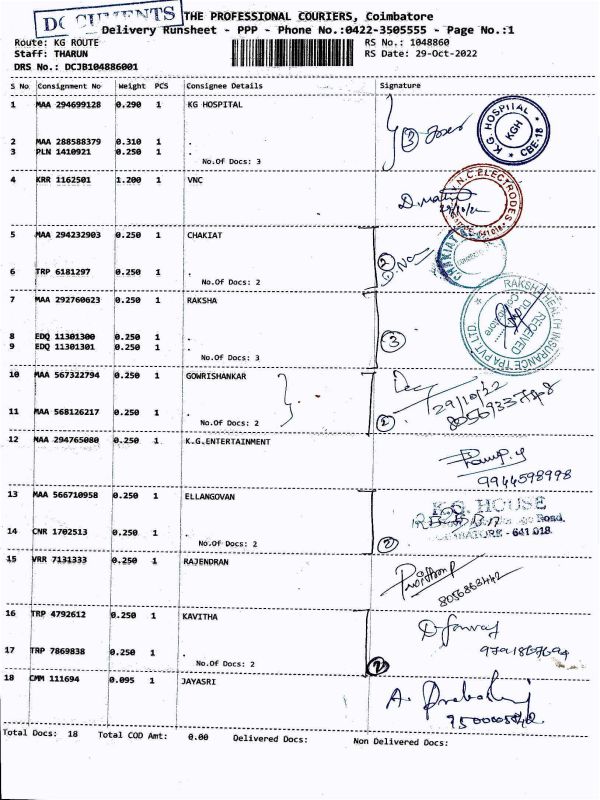 DOCUMENTS
THE PROFESSIONAL COURIERS, Coimbatore
Delivery Runsheet - PPP - Phone No.:0422-3505555 - Page No.:1
Route: KG ROUTE
RS No.: 1048860
Staff: THARUN
RS Date: 29-Oct-2022
DRS No.: DCJB104886001
S No Consignment No Weight PCS Consignee Details Signature
1 MAA 294699128 0.290 1 KG HOSPITAL
K.G. HOSPITAL KGH CBE-18
2 MAA 288588379 0.310 1
3 PLN 1410921 0.250 1
3
No.Of Docs: 3
4 KRR 1162501 1.200 1 VNC
V.N.C. ELECTRODES
29/10/22
5 MAA 294232903 0.250 1 CHAKIAT
CHAKIAT
2
6 TRP 6181297 0.250 1
No.Of Docs: 2
7 MAA 292760623 0.250 1 RAKSHA
RAKSHA HEALTH INSURANCE TPA PVT. LTD.
RECEIVED
Coimbatore
8 EDQ 11301300 0.250 1
9 EDQ 11301301 0.250 1
3
No.Of Docs: 3
10 MAA 567322794 0.250 1 GOWRISHANKAR
29/10/22
11 MAA 568126217 0.250 1
No.Of Docs: 2
2
12 MAA 294765080 0.250 1 K.G.ENTERTAINMENT
9944598998
13 MAA 566710958 0.250 1 ELLANGOVAN
K.G. HOUSE
Road,
COIMBATORE - 641 018.
14 CNR 1702513 0.250 1
No.Of Docs: 2
2
15 VRR 7131333 0.250 1 RAJENDRAN
8056863442
16 TRP 4792612 0.250 1 KAVITHA
17 TRP 7869838 0.250 1
No.Of Docs: 2
2
18 CMM 111694 0.095 1 JAYASRI
Total Docs: 18 Total COD Amt: 0.00 Delivered Docs: Non Delivered Docs: